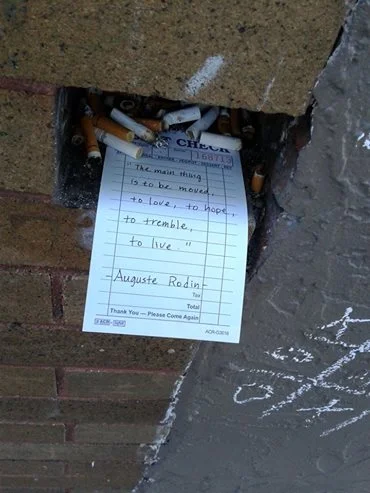 CHECK
168715
The main thing
is to be moved,
to love, to hope,
to tremble,
to live."
Auguste Rodin
Tax
Total
Thank You — Please Come Again